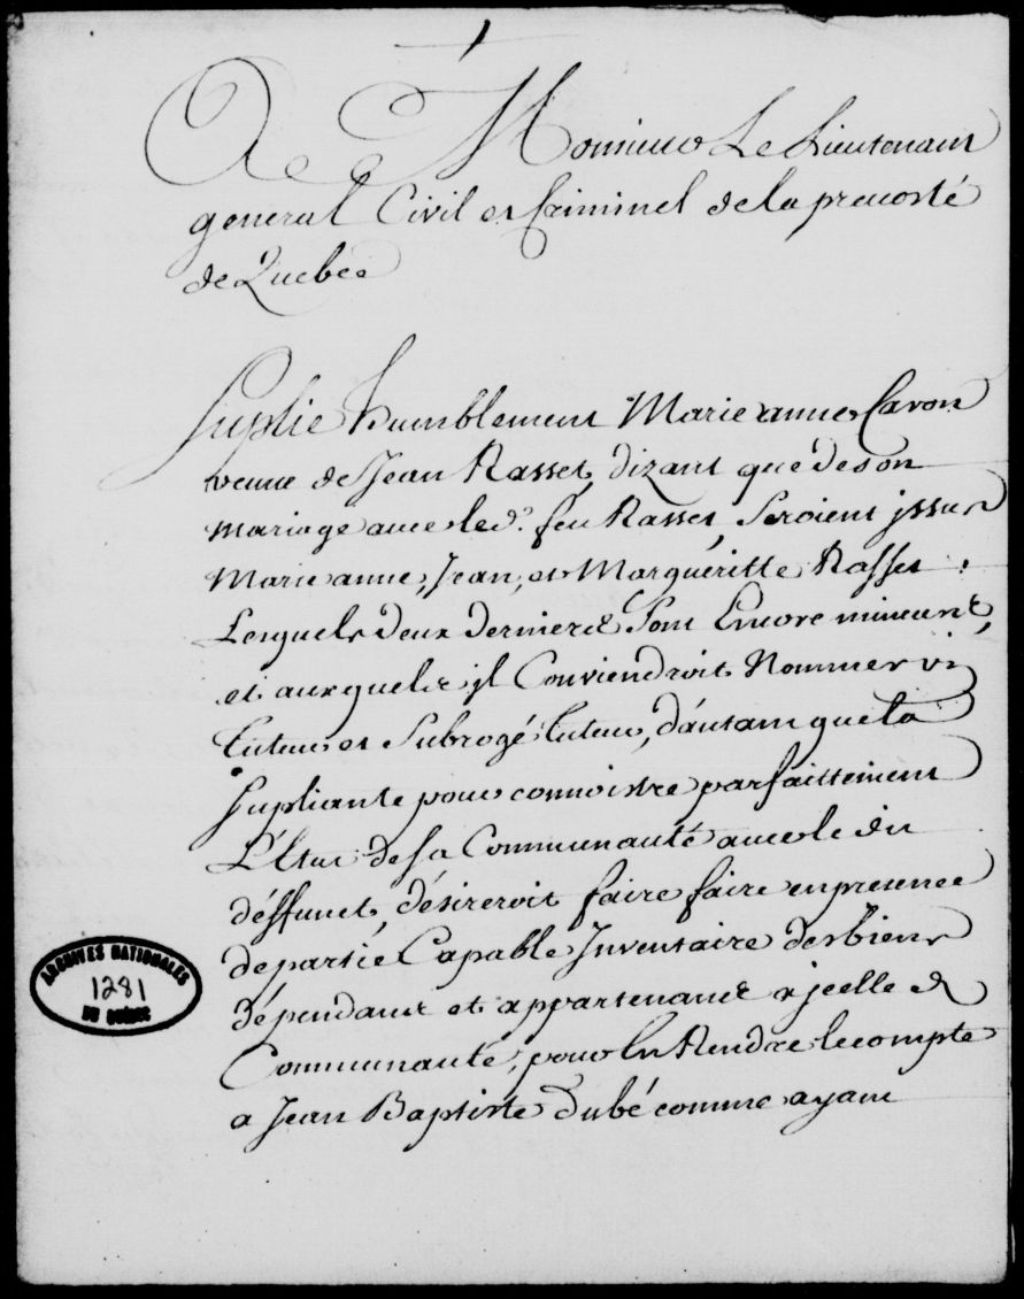 A Monsieur Le Lieutenant
general Civil et Criminel de la prevosté
de Quebec
Suplie humblement Marie anne Caron
veuve de Jean Rasset, dizant que de son
mariage avec led. feu Rasset, Seroient jssus
Marie anne, Jean, et Margueritte Rasset :
Lesquels deux derniers Sont Encore mineurs,
et auxquels jl Conviendroit Nommer vn
tuteur et Subrogé tuteur, d'autant que la
Supliante pour connoistre parfaittement
L'Etat de sa Communauté avec le dit
déffunct, désireroit faire faire en presence
de partie Capable Inventaire des biens
dépendant et appartenant a jcelle
Communauté, pour En Rendre le compte
a Jean Baptiste dubé comme ayant
ARCHIVES NATIONALES
1281
DU QUÉBEC